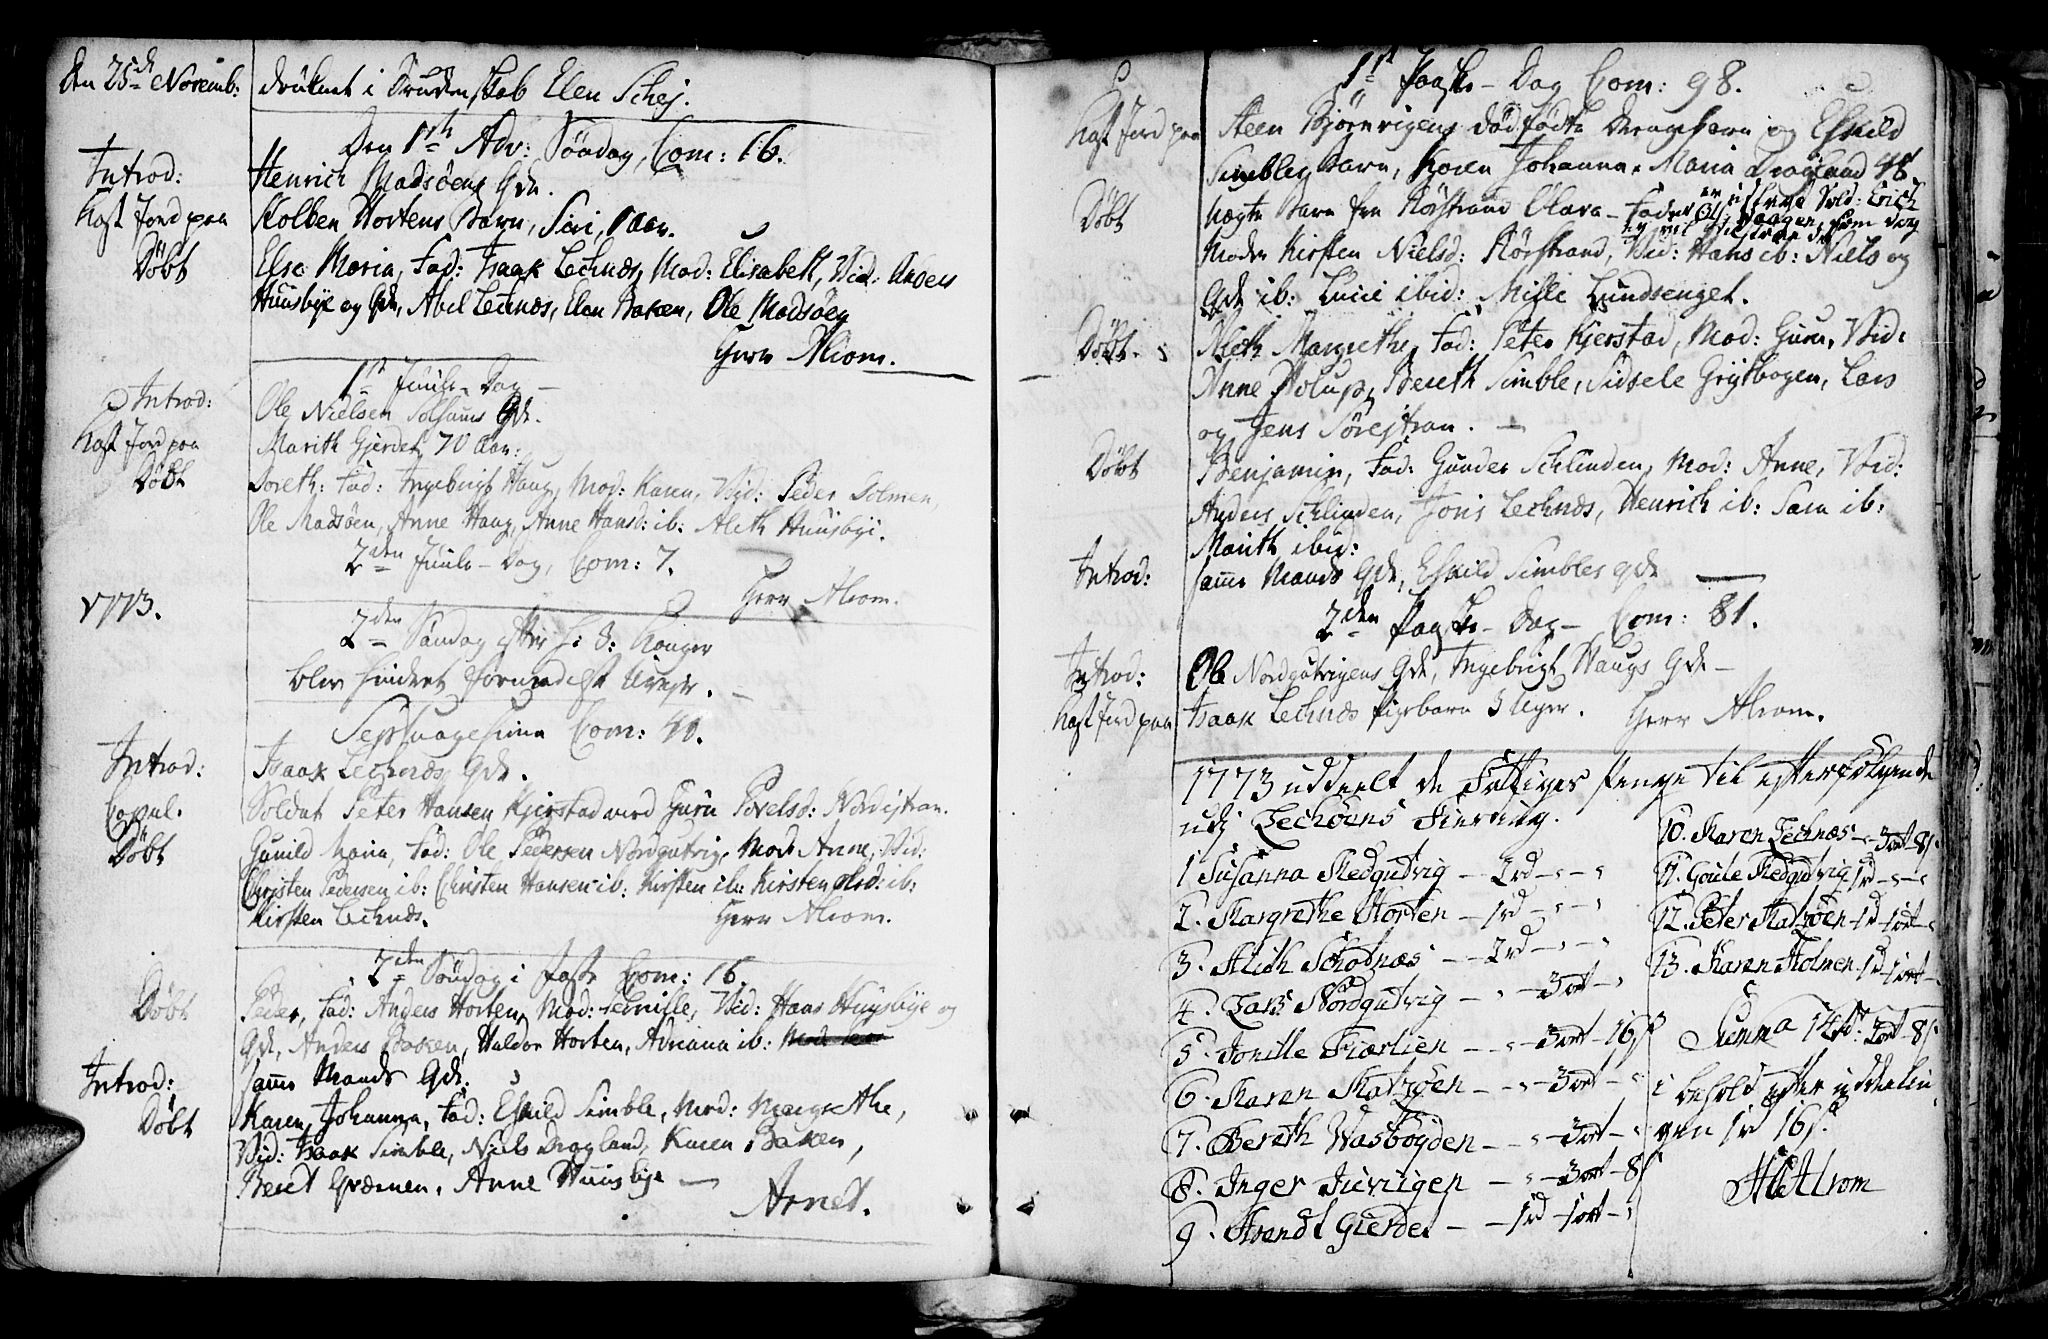 Den 25de Novemb: druknet i Drukenskab Elen Schej.
Den 1ste Adv: Søndag, Com: 16.
Introd: Henrich Madsøens Qde.
Kast Jord paa Kolben Hortens Barn, Siri, 1 Aar.
Døbt Else Maria, Fad: Isaak Lechnæs, Mod: Elisabeth, Vid: Anders
Huusbye og Qde, Abel Lechnæs, Elen Baken, Ole Madsøen
Herr Alrom.
1ste Juule-Dag —
Introd: Ole Nielsen Solhaums Qde.
Kast Jord paa Marith Gjerdet, 70 Aar.
Døbt Doreth: Fad: Ingebrigt Haug, Mod: Karen, Vid: Peder Solmen,
Ole Madsøen, Anne Haug, Anne Hansd: ib: Aleth Huusbye.
2den Juule-Dag, Com: 7.
Herr Alrom.
1773.
2den Søndag efter H: 3: Konger
blev hindret formedelst Uvejr. —
Septuagesima Com: 40.
Introd: Isaak Lechnæs, Qde.
Copul. Soldat Peter Hansen Kjerstad med Guru Povelsd: Nordejtran.
Døbt Gunild Maria, Fad: Ole Pedersen Nordgutvig, Mod: Anne, Vid:
Christen Pedersen ib: Christen Hansen ib: Kirsten ib: Kirsten Olsd: ib:
Kirsten Lechnæs. Herr Alrom.
2den Søndag i Faste Com: 16.
Døbt Peder, Fad: Anders Horten, Mod: Pernille, Vid: Hans Huusbye og
Qde, Anders Baken, Haldor Horten, Adriana ib:
Introd: samme Mands Qde.
Døbt Karen Johanna, Fad: Eskild Simble, Mod: Margrethe,
Vid: Isaak Simble, Niels Dragland, Karen Baken,
Beret Grænnen, Anne Huusbye —
Arnet.
1ste Paaske-Dag Com: 98.
Kast Jord paa Steen Bjørnvigens dødfødte Drengebarn og Eskild
Simbles Barn, Karen Johanna, Maria Dragland 48.
Døbt uægte Barn fra Rørstrand Olava - Fader
Moder Kirsten Nielsd: Rørstrand, Vid: Hans ib: Niels og
Qde ib: Lucie ibid: Mille Lundsenget.
Døbt. Aleth Margrethe, Fad: Peter Kjerstad, Mod: Guru, Vid:
Anne Holup, Bereth Simble, Sidsele Grytbogen, Lars
og Jens Sørejtran. —
Døbt Benjamin, Fad: Gunder Schlinden, Mod: Anne, Vid:
Anders Schlinden, Joris Lechnæs, Henrich ib: Sara ib:
Marith ibid:
Introd: samme Mands Qde, Eskild Simbles Qde —
2den Paaske-Dag — Com: 81.
Introd: Ole Nordgutvigens Qde, Ingebrigt Haugs Qde —
Kast Jord paa Isaak Lechnæs Pigebarn 3 Uger. Herr Alrom.
1773 uddeelt de Fattiges Penge til efterfølgende
udj Lechøens Fierding.
1 Susanna Medgutvig — 2rd — " — "
2. Margrethe Horten — 1rd — " — "
3. Alith Skodnæs — 2rd — " — "
4. Lars Nordgutvig — " — 3ort — "
5. Jonille Fiærlien — " — 3ort — 16s
6. Maren Matzøen — " — 3ort — "
7. Bereth Wasbogden — " — 3ort — "
8. Inger Juvigen — " — 3ort — 8s
9. Arendt Gierdet — 1rd — 1ort — "
10. Maren Lechnæs — " — 3ort — 8s.
11. Goule Medgutvig 1rd — " — "
12. Peter Matzøen 1rd — 1ort — "
13. Maren Holmen 1rd — 1ort — "
Summa 14rd: 2ort — 8s.
i behold efter uddeelin
gen 1rd 16s.
Alrom